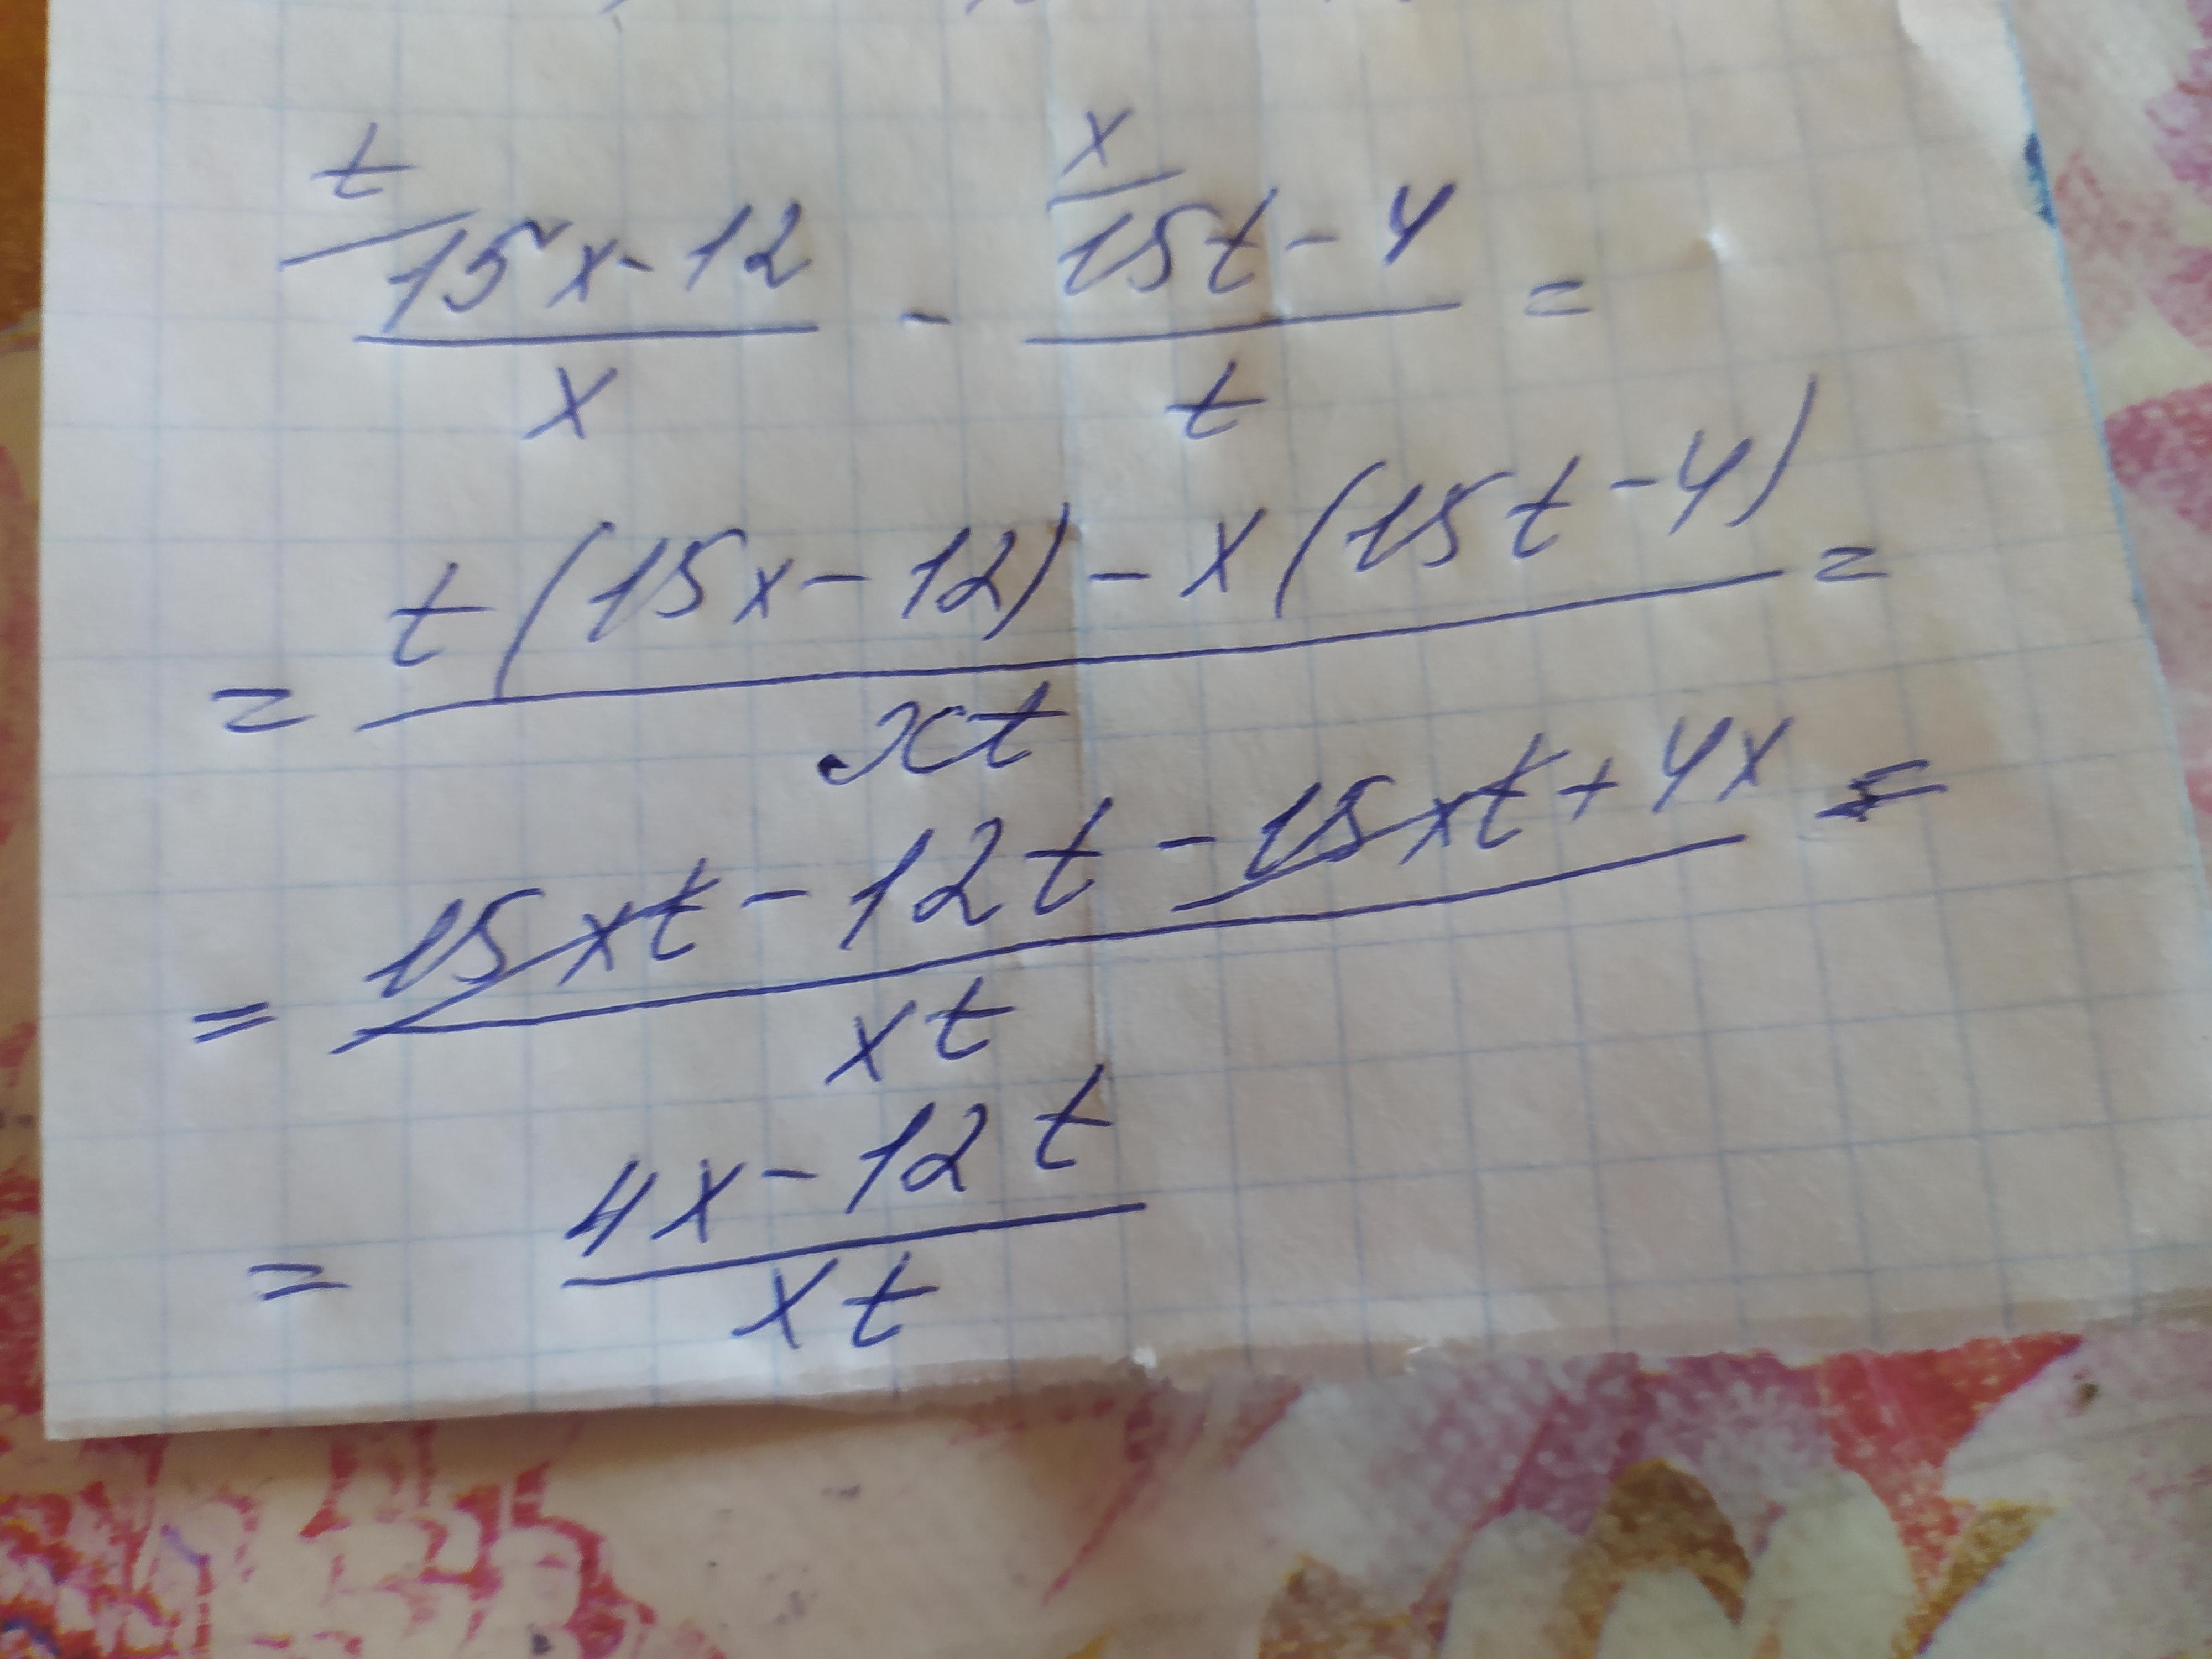 t x
15x-12 - 15t-4 =
x t
= t(15x-12)-x(15t-4) =
xt
= 15xt-12t-15xt+4x =
xt
= 4x-12t
xt